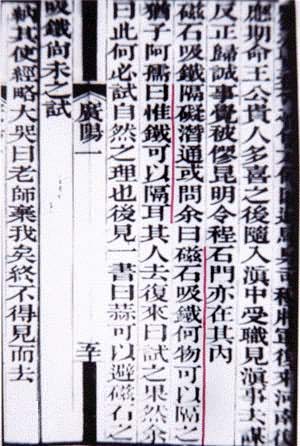 將軍復來河南
應期命王公貴人多喜之後隨入滇中受職見滇事大
反正歸誠事覺被僇昆明令程石門亦在其內
磁石吸鐵隔礙潛通或問余曰磁石吸鐵何物可以隔之
猶子阿孺曰惟鐵可以隔耳其人去復來曰試之果然余
曰此何必試自然之理也後見一書曰蒜可以避磁石之
吸鐵尚未之試
廣陽一
五十
其使經略大哭曰老師棄我矣終不得見而去